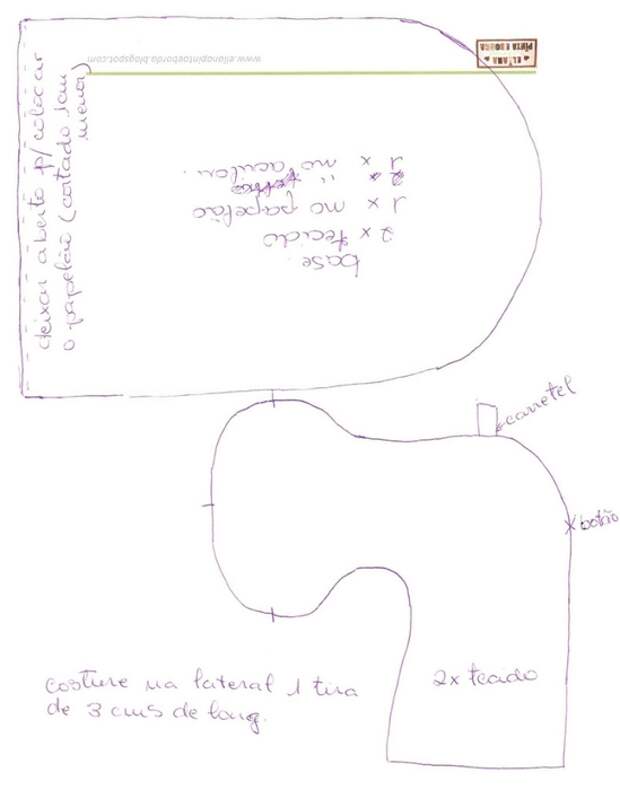 ELIANA
PINTA E BORDA
www.elianapintaebborda.blogspot.com
deixar aberto p/ colocar
o papelão (cortado 1cm
menor)
base:
2 x tecido
1 x no papelão
2 x "
1 x no acrilon.
carretel
botão
2x tecido
costure na lateral 1 tira
de 3 cms de larg.